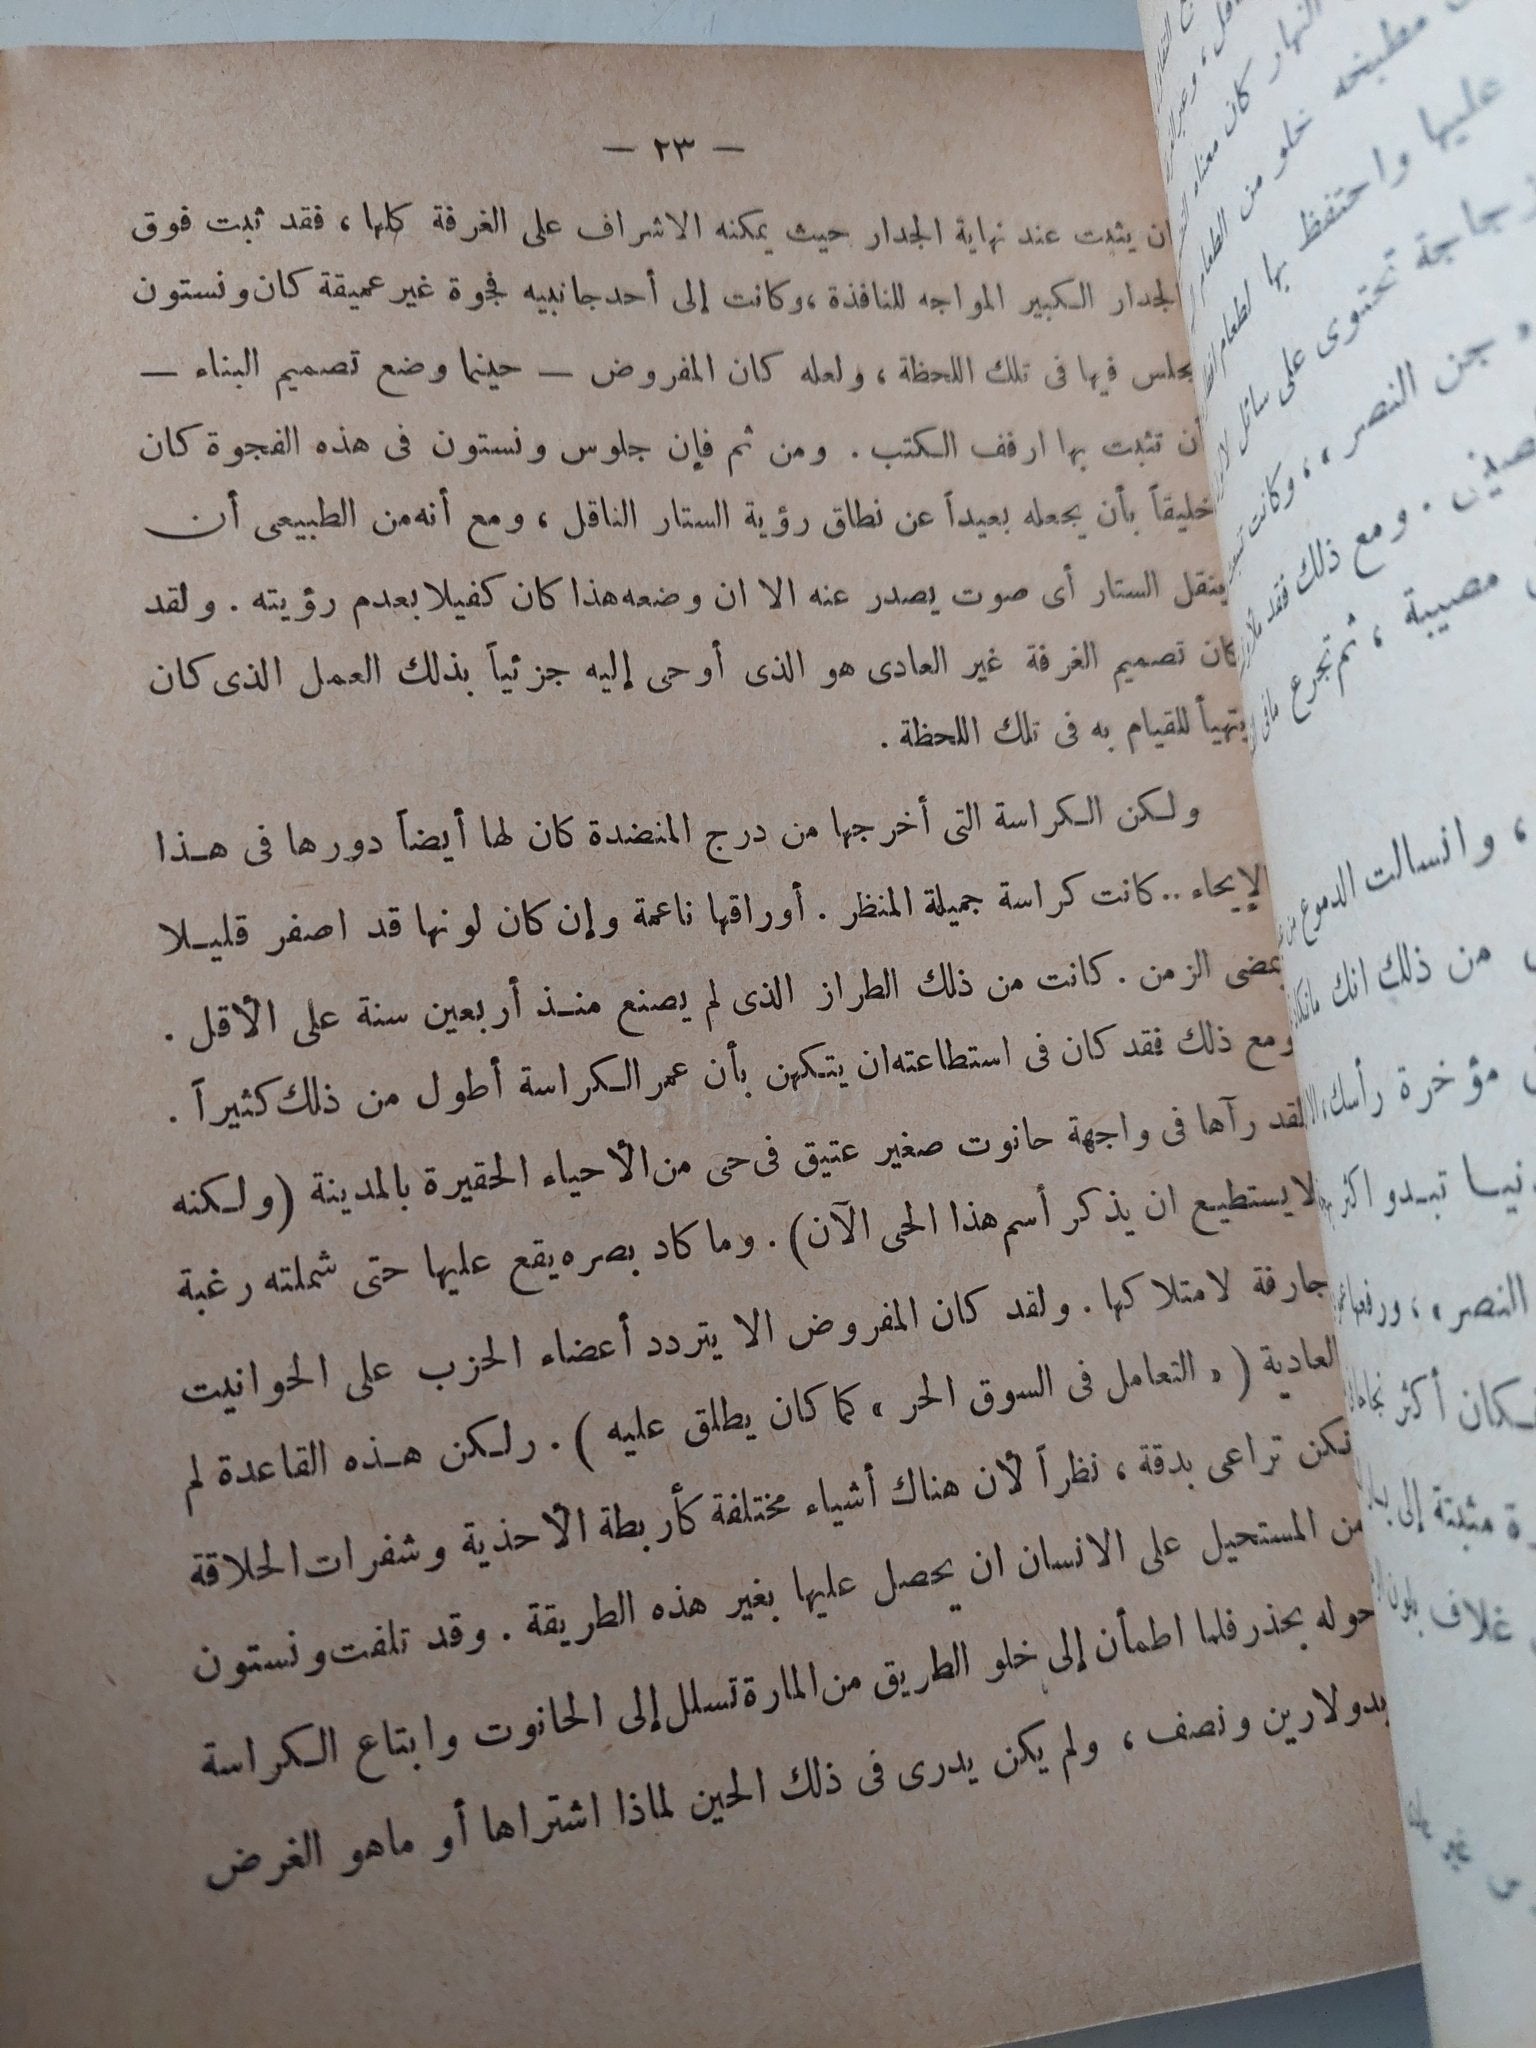 — ٢٣ —
ان يثبت عند نهاية الجدار حيث يمكنه الاشراف على الغرفة كلها ، فقد ثبت فوق
الجدار الكبير المواجه للنافذة ، وكانت إلى أحد جانبيه فجوة غير عميقة كان ونستون
يجلس فيها فى تلك اللحظة ، ولعله كان المفروض — حينما وضع تصميم البناء —
أن تثبت بها ارفف الكتب . ومن ثم فإن جلوس ونستون فى هذه الفجوة كان
خليقاً بأن يجعله بعيداً عن نطاق رؤية الستار الناقل ، ومع أنه من الطبيعى أن
ينقل الستار أى صوت يصدر عنه الا ان وضعه هذا كان كفيلا بعدم رؤيته . ولقد
كان تصميم الغرفة غير العادى هو الذى أوحى إليه جزئياً بذلك العمل الذى كان
يتهيأ للقيام به فى تلك اللحظة .
ولكن الكراسة التى أخرجها من درج المنضدة كان لها أيضاً دورها فى هذا
الإيحاء .. كانت كراسة جميلة المنظر . أوراقها ناعمة وإن كان لونها قد اصفر قليلا
بمضى الزمن . كانت من ذلك الطراز الذى لم يصنع منذ أربعين سنة على الأقل .
ومع ذلك فقد كان فى استطاعته ان يتكهن بأن عمر الكراسة أطول من ذلك كثيراً .
لقد رآها فى واجهة حانوت صغير عتيق فى حى من الأحياء الحقيرة بالمدينة (ولكنه
لا يستطيع ان يذكر أسم هذا الحى الآن) . وما كاد بصره يقع عليها حتى شملته رغبة
جارفة لامتلاكها . ولقد كان المفروض الا يتردد أعضاء الحزب على الحوانيت
العادية ( « التعامل فى السوق الحر » كما كان يطلق عليه ) . ولكن هذه القاعدة لم
تكن تراعى بدقة ، نظراً لأن هناك أشياء مختلفة كأربطة الأحذية وشفرات الحلاقة
من المستحيل على الانسان ان يحصل عليها بغير هذه الطريقة . وقد تلفت ونستون
حوله بحذر فلما اطمأن إلى خلو الطريق من المارة تسلل إلى الحانوت وابتاع الكراسة
بدولارين ونصف ، ولم يكن يدرى فى ذلك الحين لماذا اشتراها أو ماهو الغرض
النهار كان معناه
مطبخه خلو من الطعام
عليها واحتفظ بها لطعام
زجاجة تحتوى على سائل
جن النصر » ، وكانت
. ومع ذلك فقد
مصيبة ، ثم تجرع مافى
، وانسالت الدموع من
من ذلك انك
مؤخرة رأسك
تبدو اكثر
النصر » ، ورفعها
أكثر
مثبتة إلى
غلاف بلون
غير